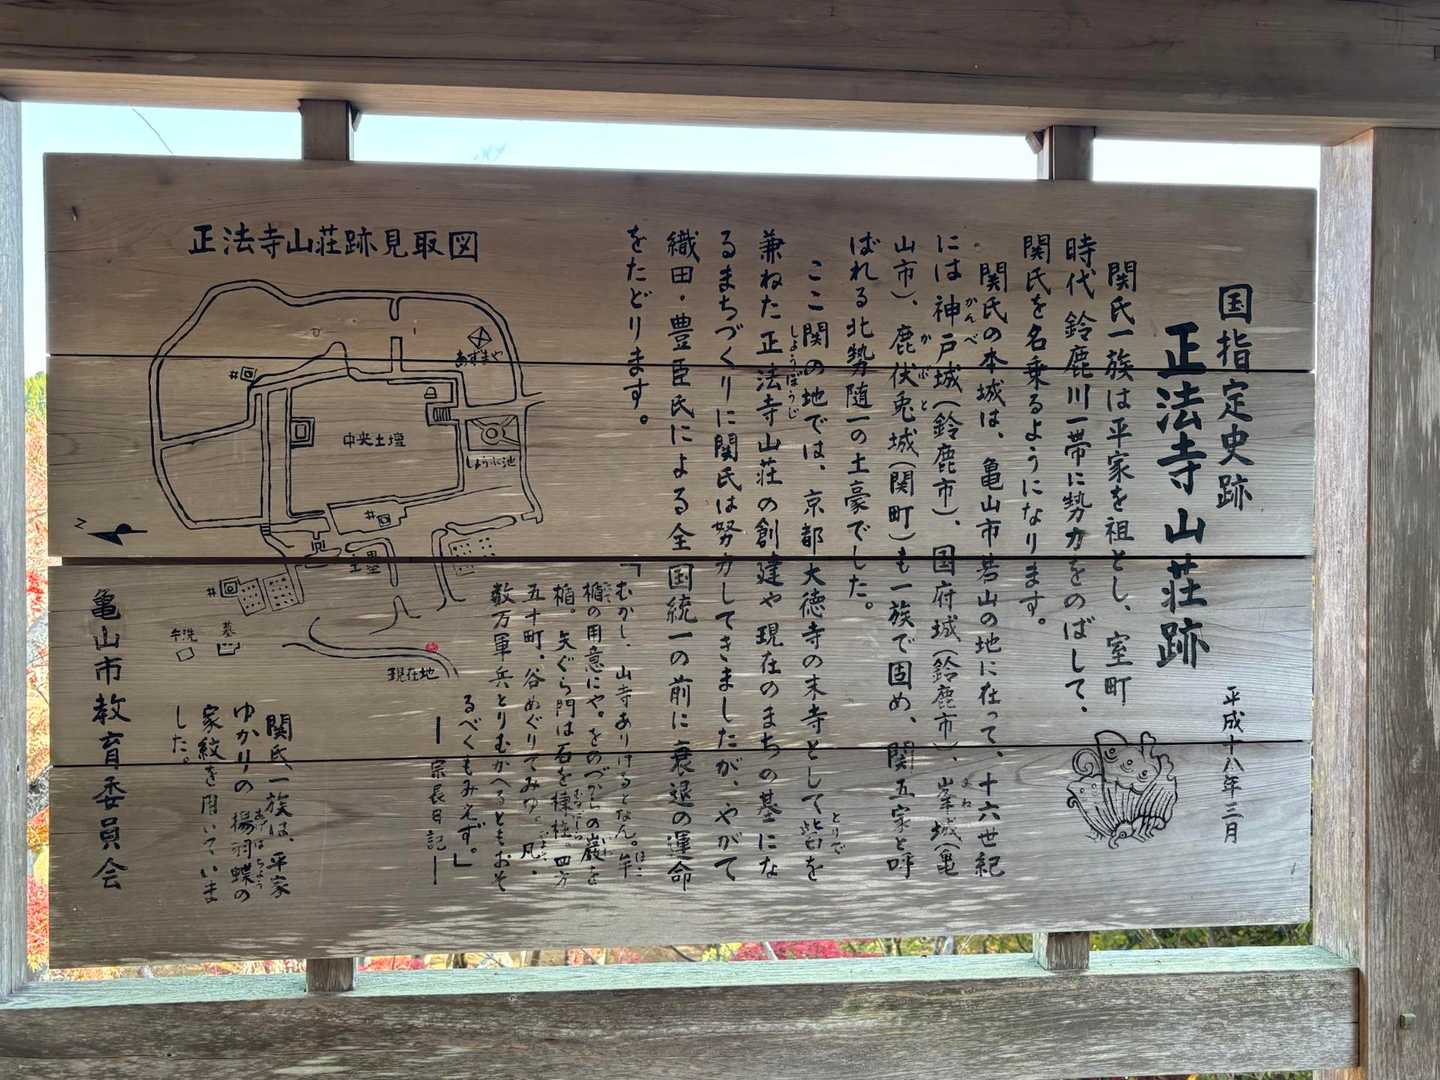 国指定史跡
正法寺山荘跡
平成十八年三月
関氏一族は平家を祖とし、室町
時代鈴鹿川一帯に勢力をのばして、
関氏を名乗るようになります。
関氏の本城は、亀山市若山の地に在って、十六世紀
には神戸城(鈴鹿市)、国府城(鈴鹿市)、峯城(亀
かんべ
みね
山市)、鹿伏兎城(関町)も一族で固め、関五家と呼
かぶと
ばれる北勢随一の土豪でした。
ここ関の地では、京都大徳寺の末寺として砦を
とりで
兼ねた正法寺山荘の創建や現在のまちの基にな
しょうぼうじ
るまちづくりに関氏は努力してきましたが、やがて
織田・豊臣氏による全国統一の前に衰退の運命
をたどります。
「むかし、山寺ありけるとなん。
楯の用意にや。をのづからの巌を
楯。矢ぐら門は石を棟柱。四方
五十町、谷めぐりてみゆ。凡、
数万軍兵とりむかへるともおそ
るべくもみえず。」
―宗長日記―
正法寺山荘跡見取図
あずまや
井
中央土壇
しょうぶ池
井
土塁
N
井
牛洗
墓
現在地
関氏一族は、平家
ゆかりの揚羽蝶の
あげはちょう
家紋を用いていま
した。
亀山市教育委員会